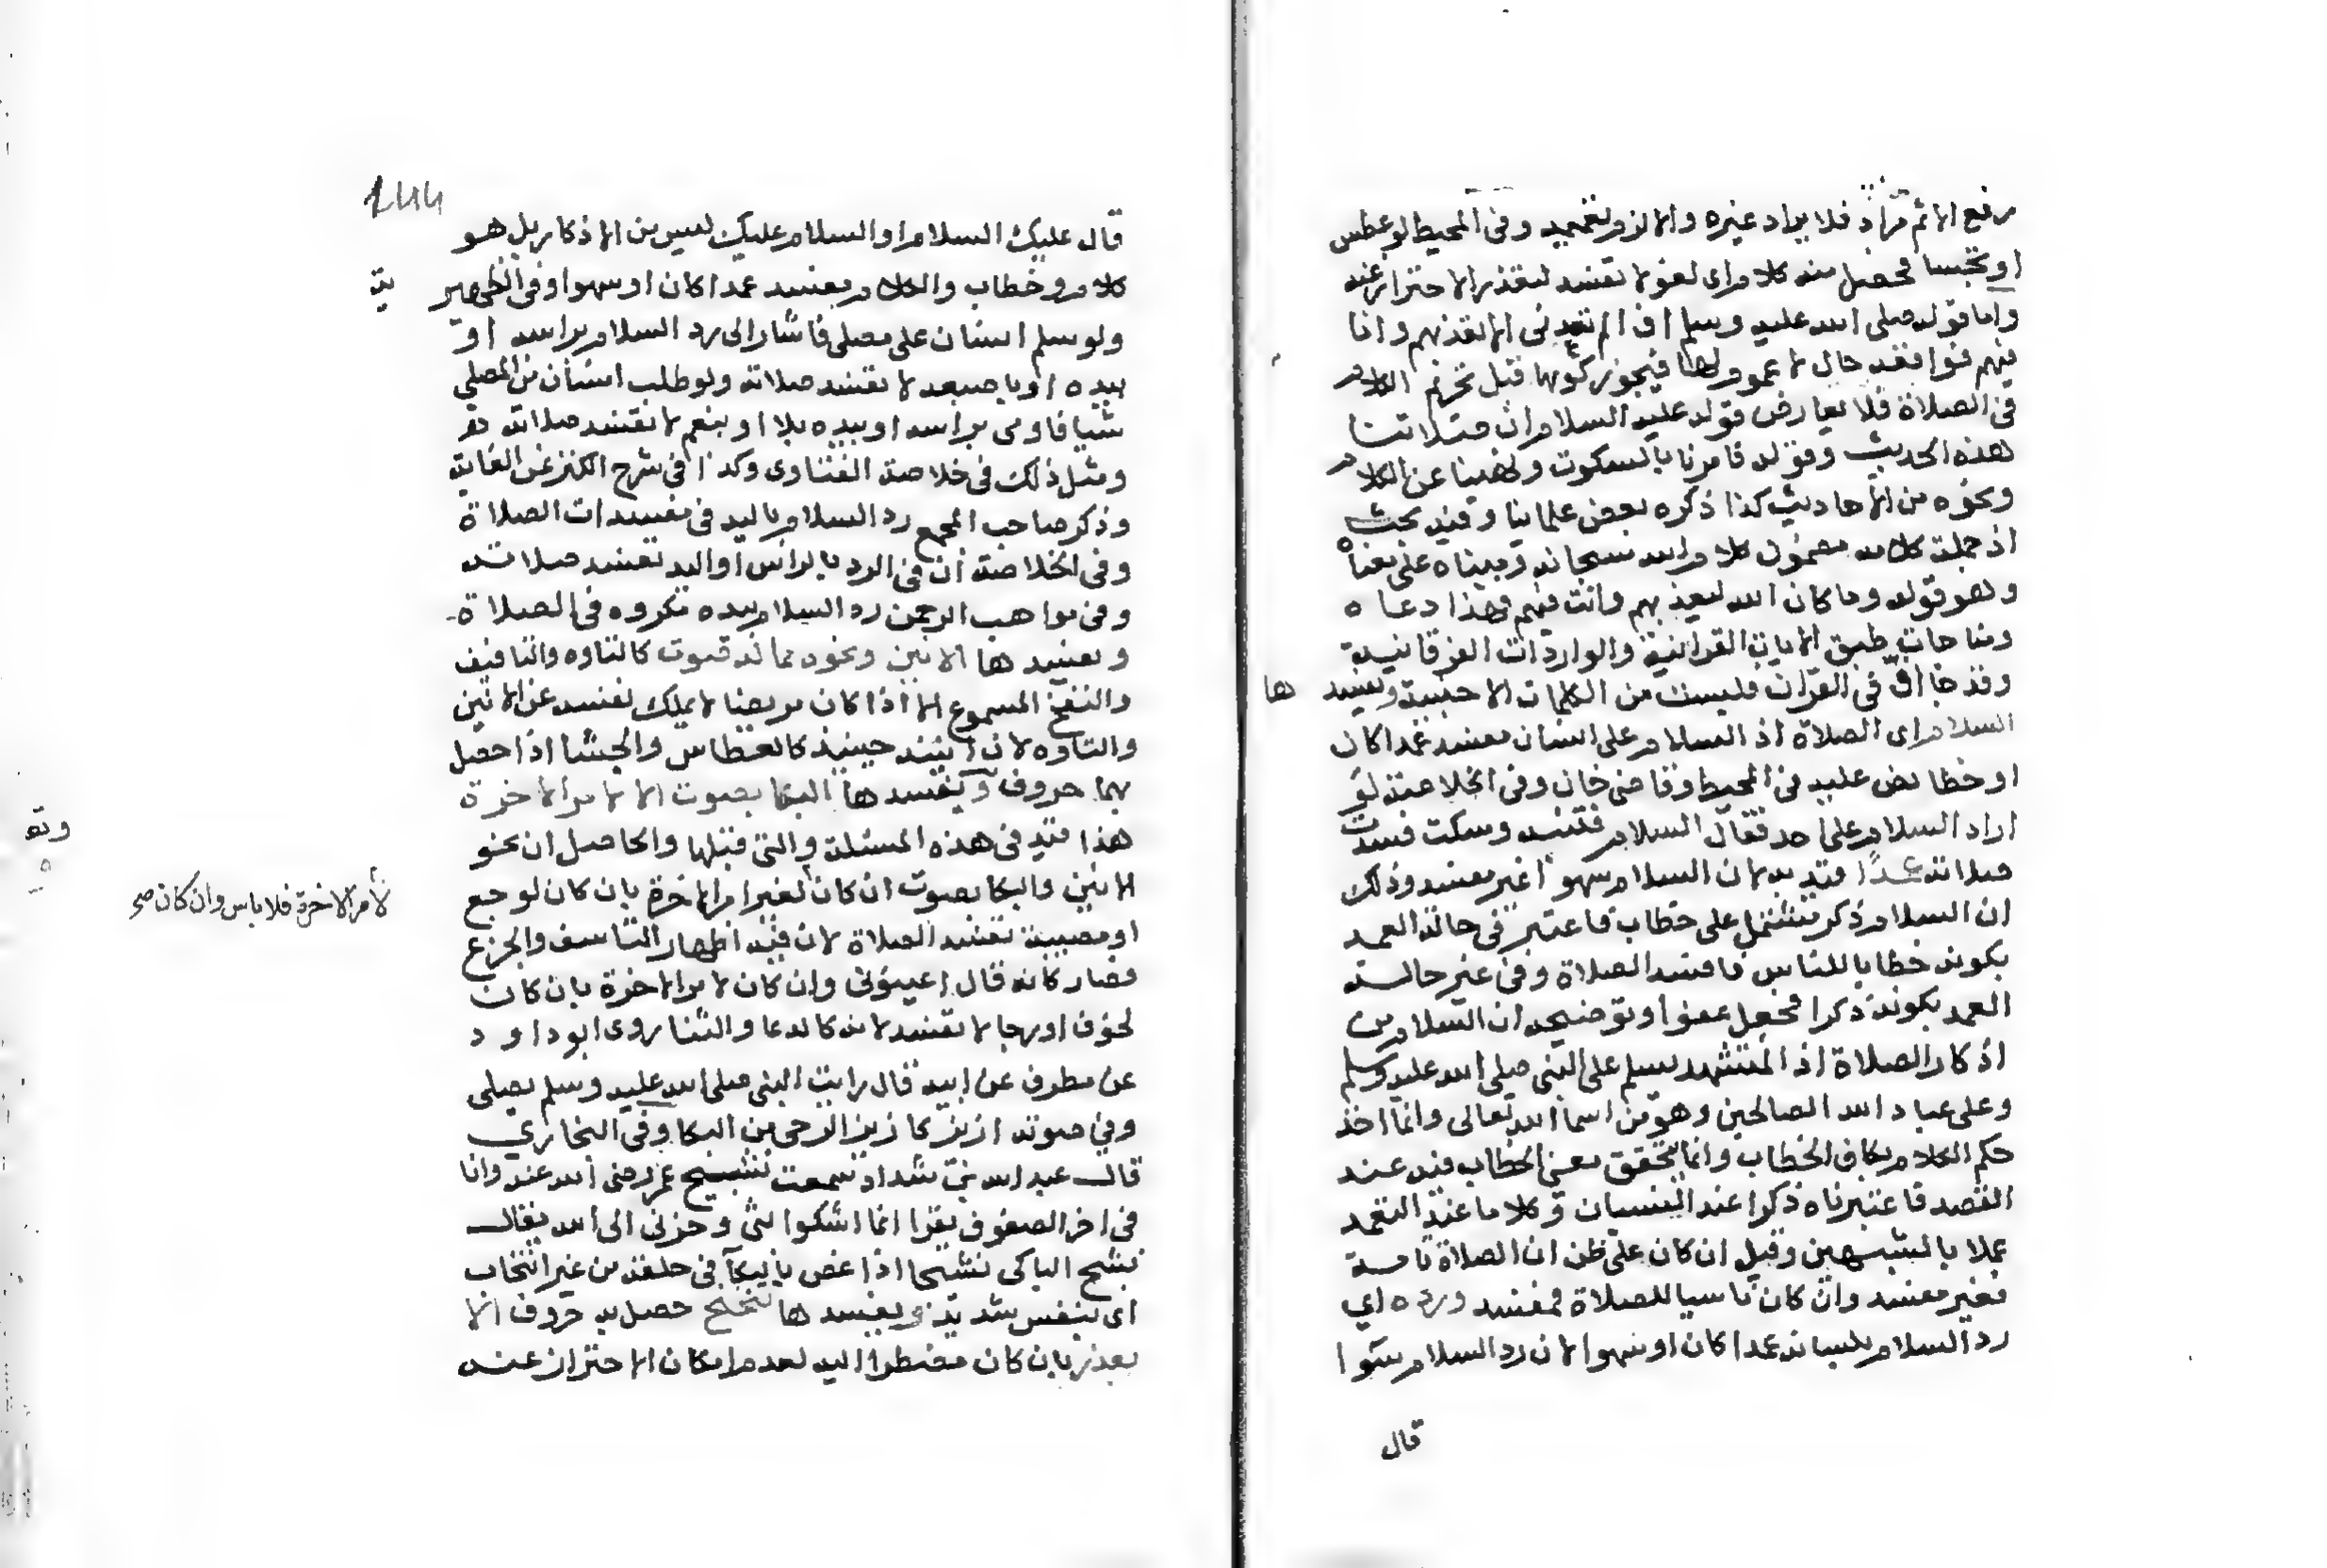 رفع الاثم مراد فلا يراد غيره والا لزم تعميمه وفى المحيط لو عطس
او تجشا فحصل منه كلام اى لغو لا تفسد لتعذر الاحتراز عنه
واما قوله صلى الله عليه وسلم اف الم تعدنى ان لا تعذبهم وانا
فيهم فواقعة حال لا عموم لها فيجوز كونها قبل تحريم الكلام
فى الصلاة فلا يعارض قوله عليه السلام ان صلاتنا
هذه الحديث وقوله فامرنا بالسكوت ونهينا عن الكلام
ونحوه من الاحاديث كذا ذكره بعض علمائنا وفيه بحث
اذ جملة كلامه مضمون كلام الله سبحانه ومبناه على معناه
وهو قوله وما كان الله ليعذبهم وانت فيهم فهذا دعاه
ومناجات طبق الايات القرانية والواردات الفرقانية
وقد جا اف فى القران فليست من الكلمات الاجنبية ويفسدها
السلام اى الصلاة اذ السلام على انسان مفسد عمدا كان
او خطا نص عليه فى المحيط وقاضى خان وفى الخلاصة لو
اراد السلام على احد فقال السلام فتنبه وسكت فسدت
صلاته عمدا قيد به لان السلام سهوا غير مفسد وذلك
ان السلام ذكر مشتمل على خطاب فاعتبر فى حالة العمد
بكونه خطابا للناس فافسد الصلاة وفى غير حالة
العمد بكونه ذكرا فجعل عفوا وتوضيحه ان السلام من
اذكار الصلاة اذ المتشهد يسلم على النبى صلى الله عليه وسلم
وعلى عباد الله الصالحين وهو من اسما الله تعالى وانما اخذ
حكم الكلام بكاف الخطاب وانما يتحقق معنى الخطاب فيه عند
القصد فاعتبرناه ذكرا عند النسيان وكلاما عند التعمد
عملا بالشبهين وقيل ان كان على ظن ان الصلاة تامة
فغير مفسد وان كان ناسيا للصلاة فمفسد ورده اي
رد السلام بلسانه عمدا كان او سهوا لان رد السلام سوا
قال
قال عليك السلام او السلام عليك ليس من الاذكار بل هو
كلام وخطاب والكلام مفسد عمدا كان او سهوا وفى الظهير
ية
ولو سلم انسان على مصلى فاشار الى رد السلام براسه او
بيده او باصبعه لا تفسد صلاته ولو طلب انسان من المصلي
شيا فاومى براسه او بيده بلا او بنعم لا تفسد صلاته
ومثل ذلك فى خلاصة الفتاوى وكذا فى شرح الكنز عن الغاية
وذكر صاحب المجمع رد السلام باليد فى مفسدات الصلاة
وفى الخلاصة ان فى الرد بالراس او اليد تفسد صلاته
وفى مواهب الرحمن رد السلام بيده مكروه فى الصلاة
ويفسدها الانين ونحوه مما له صوت كالتاوه والتافيف
والنفخ المسموع الا اذا كان مريضا لا يملك نفسه عن الانين
والتاوه لان انينه حينئذ كالعطاس والجشا اذا حصل
بهما حروف ويفسدها البكا بصوت الا لامر الاخرة
هذا قيد فى هذه المسئلة والتى قبلها والحاصل ان نحو
الانين والبكا بصوت ان كان لغير امر الاخرة بان كان لوجع
او مصيبة تفسد الصلاة لان فيه اظهار التاسف والجزع
فصار كانه قال اعينونى وان كان لامر الاخرة بان كان
لخوف او رجا لا تفسد لانه كالدعا والثنا روى ابو داود
عن مطرف عن ابيه قال رايت النبى صلى الله عليه وسلم يصلى
وفى صوته ازيز كازيز الرحى من البكا وفى البخاري
قال عبد الله بن شداد سمعت نشيج عمر رضى الله عنه وانا
فى اخر الصفوف يقرا انما اشكوا بثى وحزنى الى الله يقال
نشج الباكى نشيجا اذا غص بالبكا فى حلقه من غير انتحاب
اى بنفس شديد ويفسدها تنحنح حصل به حروف الا
بعذر بان كان مضطرا اليه لعدم امكان الاحتراز عنه
لامر الاخرة فلا باس وان كان صح